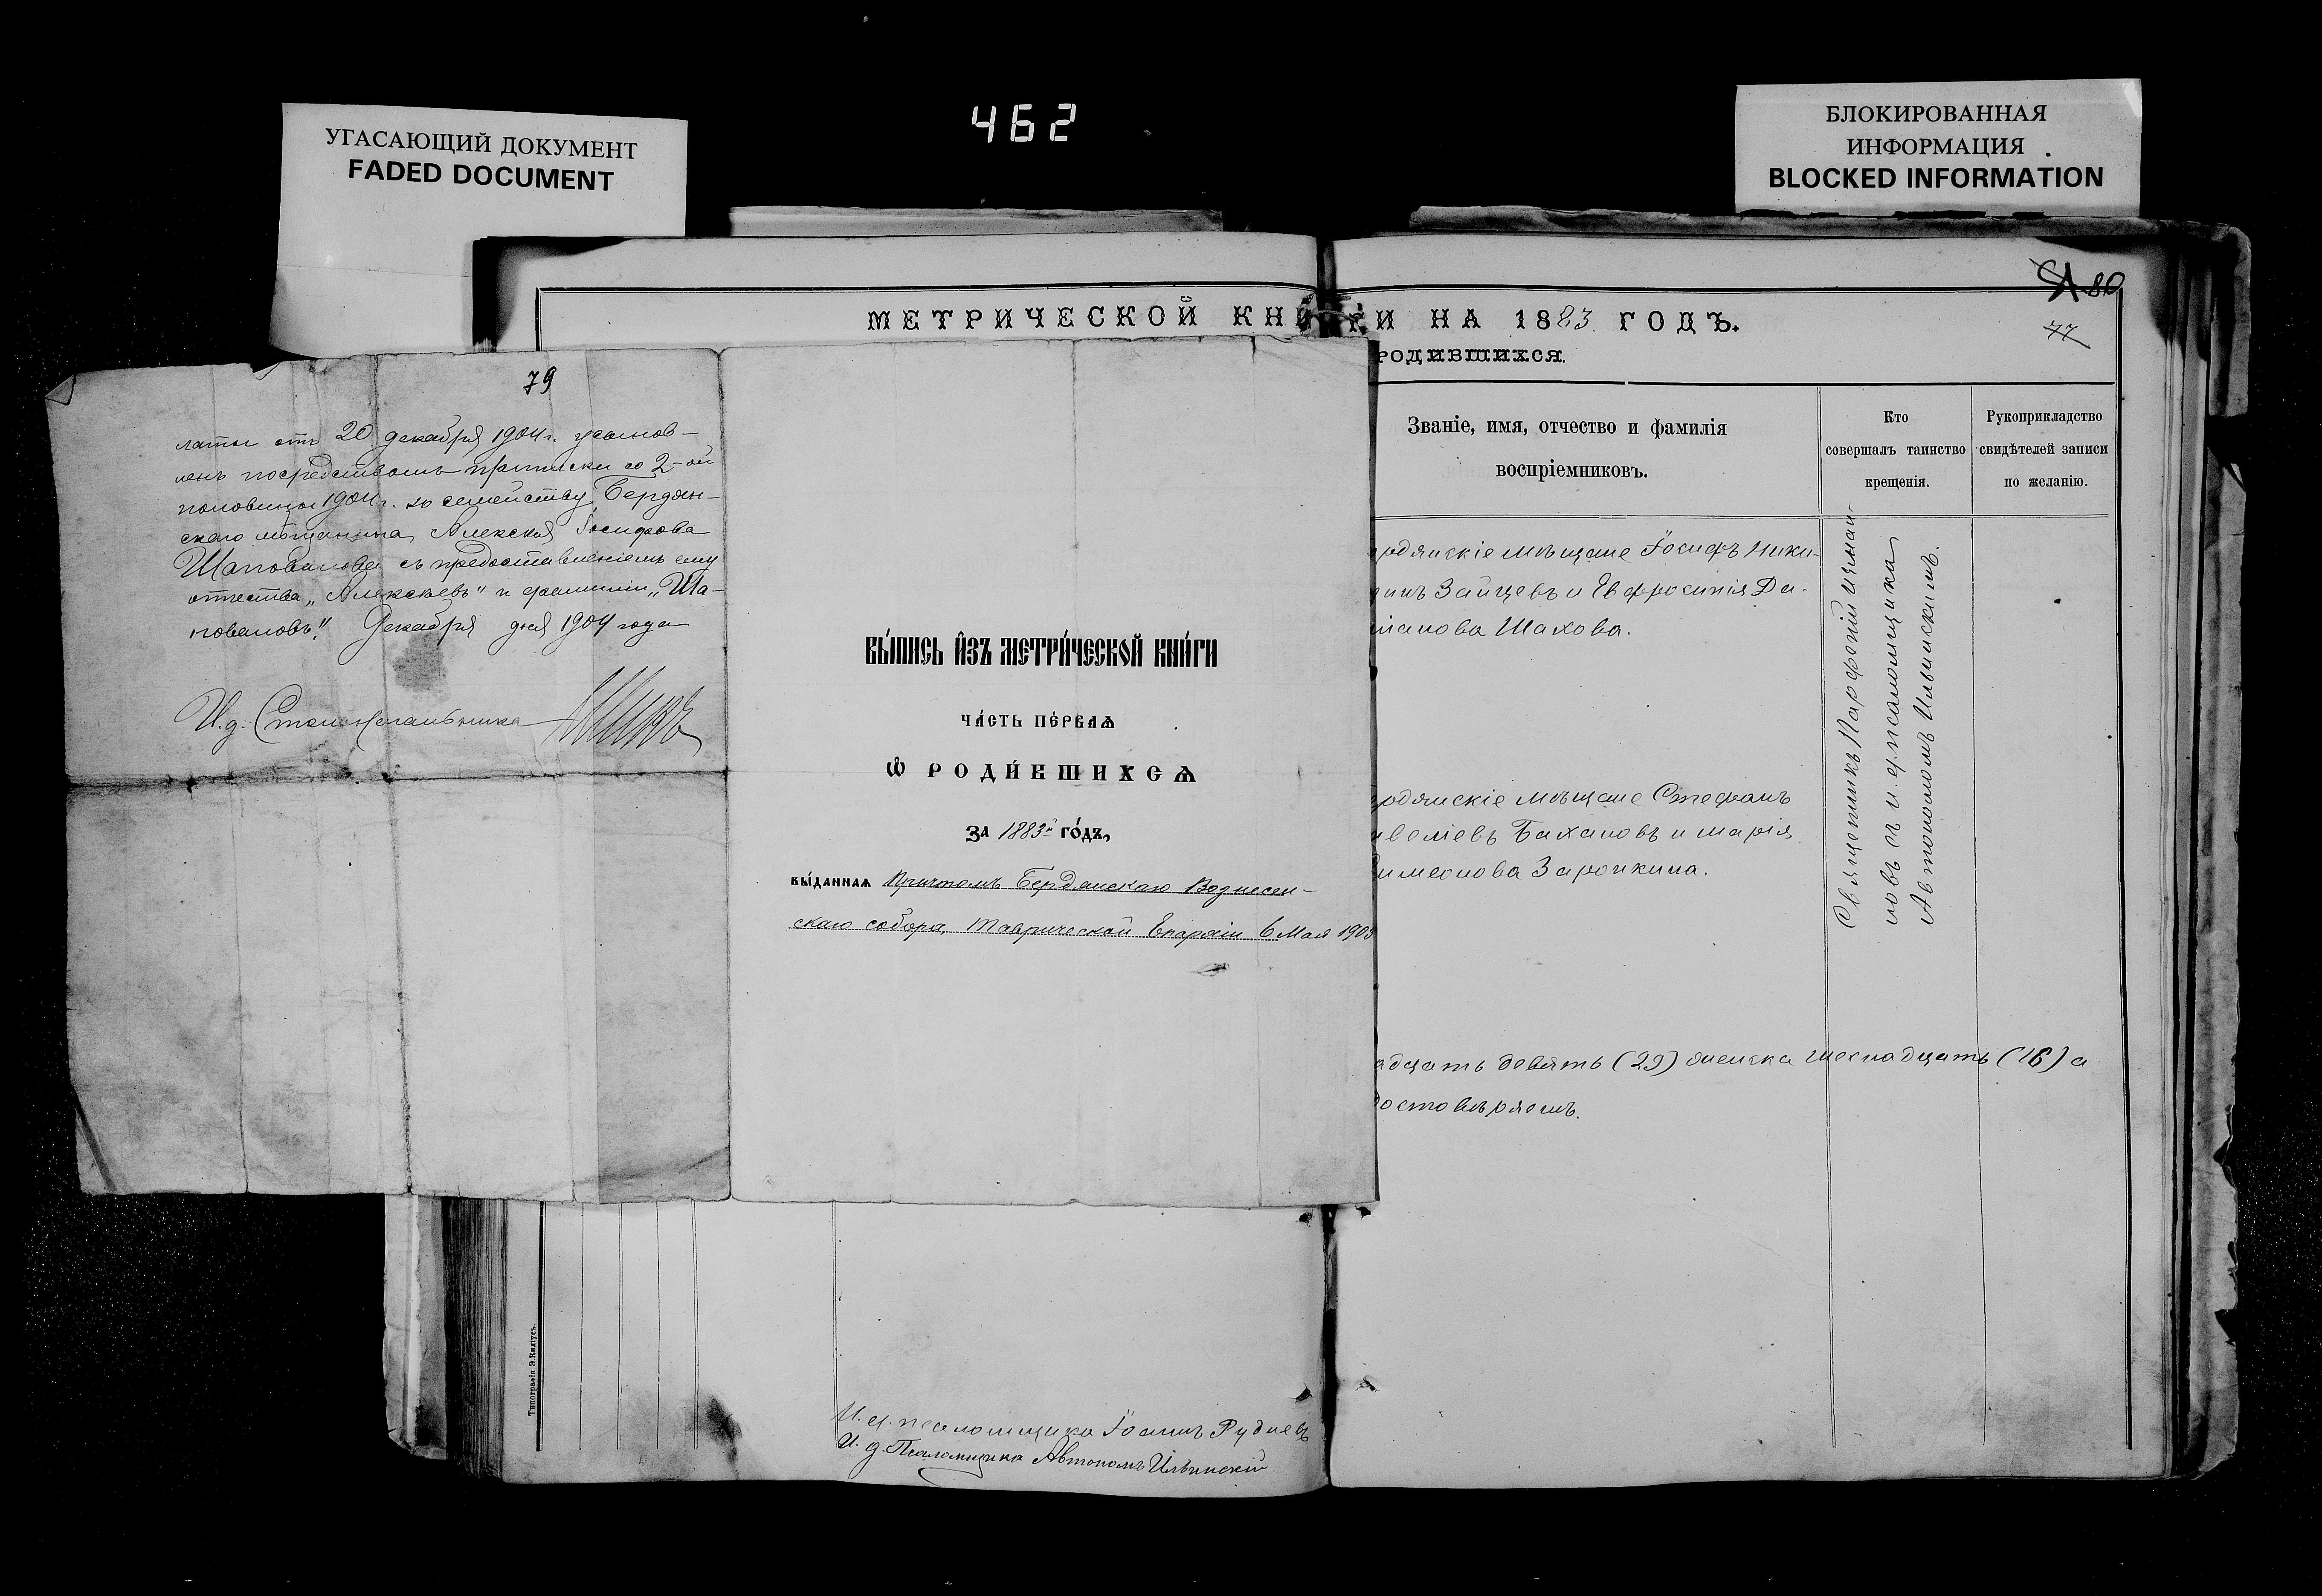 462
УГАСАЮЩИЙ ДОКУМЕНТ
FADED DOCUMENT
БЛОКИРОВАННАЯ
ИНФОРМАЦИЯ
BLOCKED INFORMATION
МЕТРИЧЕСКОЙ КНИГИ НА 1883 ГОДЪ.
РОДИВШИХСЯ.
80
77
79
латы отъ 20 декабря 1904 г. усынов-
ленъ посредствомъ приписки со 2-ой
половины 1904 г. къ семейству Бердян-
скаго мѣщанина Алексѣя Іосифова
Шаповалова съ предоставленіемъ ему
отчества „Алексѣевъ" и фамиліи „Ша-
поваловъ". Декабря дня 1904 года
И.д. Столоначальника
ВЫ́ПИСЬ И҆ЗЪ МЕТРИ́ЧЕСКОЙ КНИ́ГИ
ЧА́СТЬ ПЕ́РВАѦ
Ѡ҆ РОДИ́ВШИХСѦ
ЗА 1883й ГО́ДЪ,
ВЫ́ДАННАѦ Причтомъ Бердянскаго Вознесен-
скаго собора, Таврической Епархіи 6 Мая 1903
Званіе, имя, отчество и фамилія
воспріемниковъ.
Кто
совершалъ таинство
крещенія.
Рукоприкладство
свидѣтелей записи
по желанію.
рдянскіе мѣщане Іосифъ Ники-
инъ Зайцевъ и Евфросинія Да-
іанова Шахова.
рдянскіе мѣщане Стефанъ
веліевъ Бахановъ и Марія
имеонова Заронкина.
Священникъ Парфеній
новъ съ и. д. псаломщика
Автономомъ Ильинскимъ.
дцать девять (29) женска шеснадцать (16) а
достовѣряемъ.
Типографія Э. Киліусъ.
И. д. псаломщика Іоаннъ Рудневъ
И. д. Псаломщика Автономъ Ильинскій